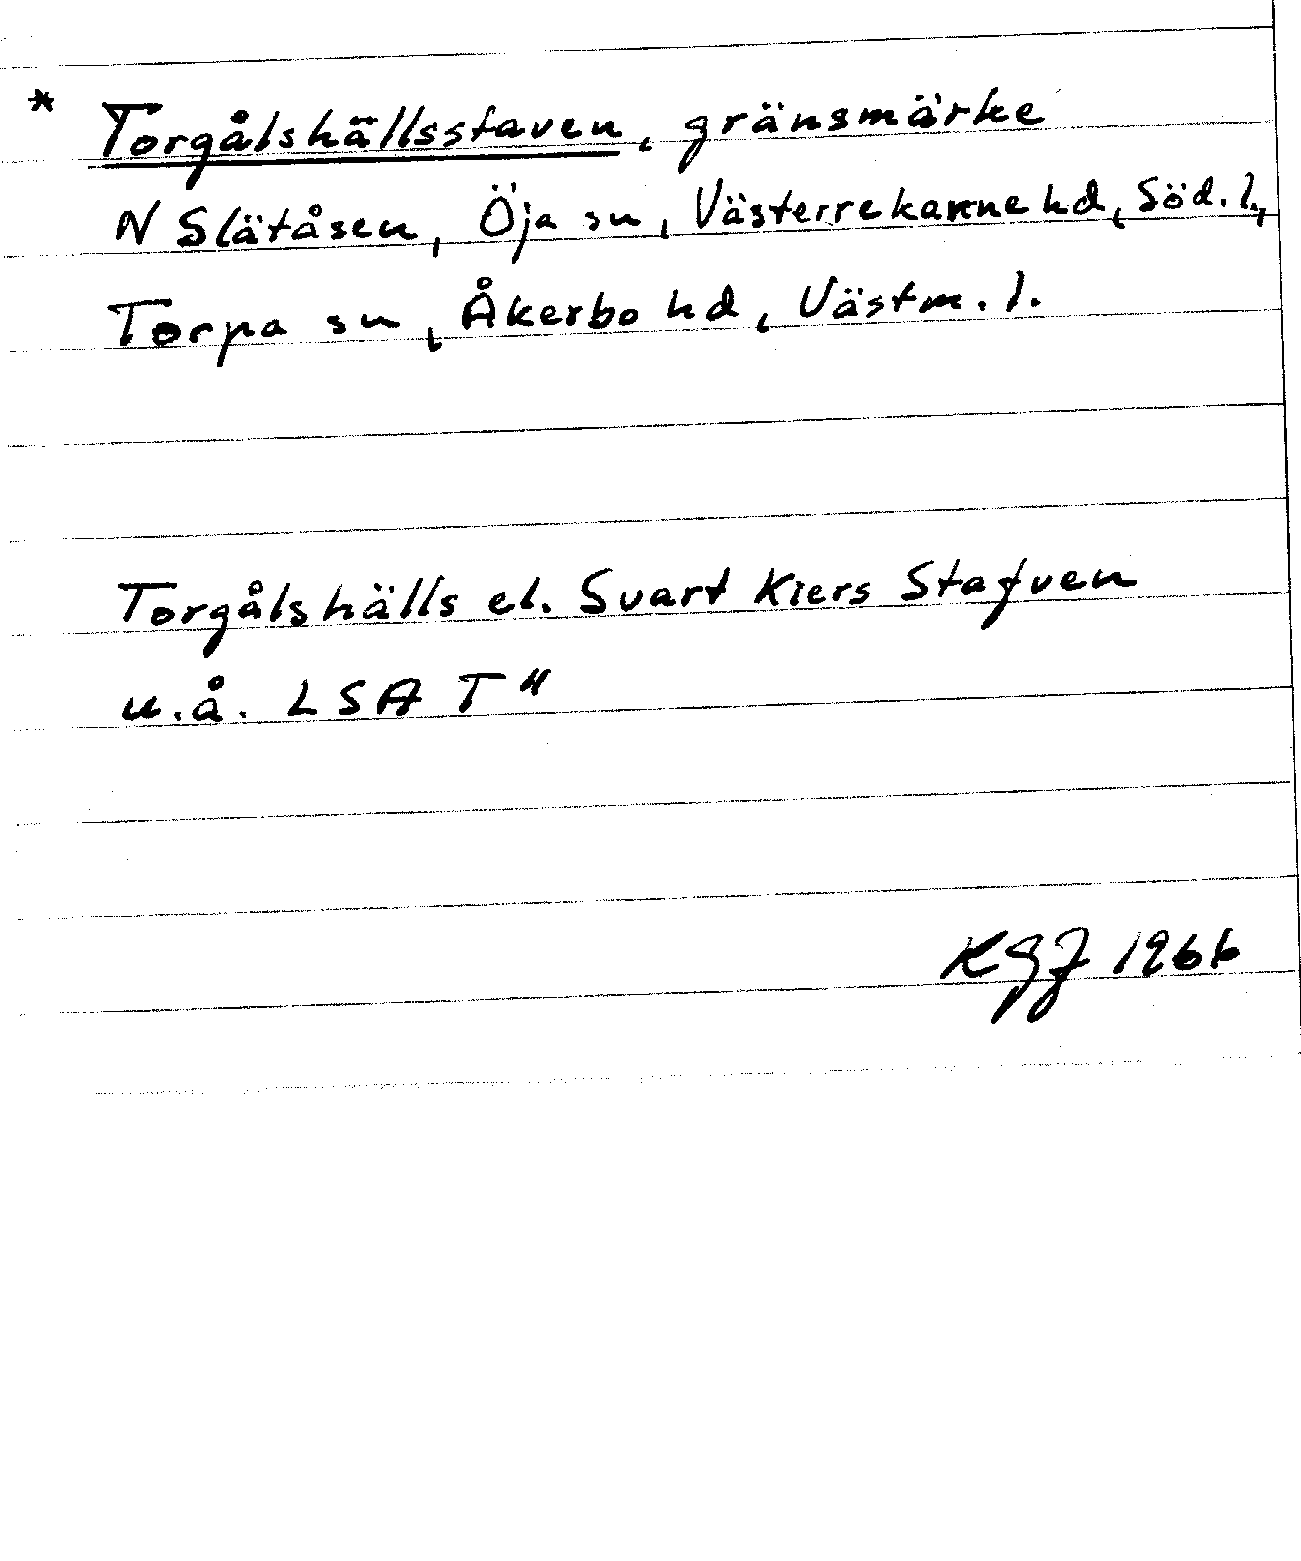 * Torgålshällsstaven, gränsmärke
N Slätåsen, Öja sn, Västerrekarne hd, Söd. l.,
Torpa sn, Åkerbo hd, Västm. l.
Torgålshälls el. Svart Kiers Stafven
u.å. LSA T"
KGJ 1966